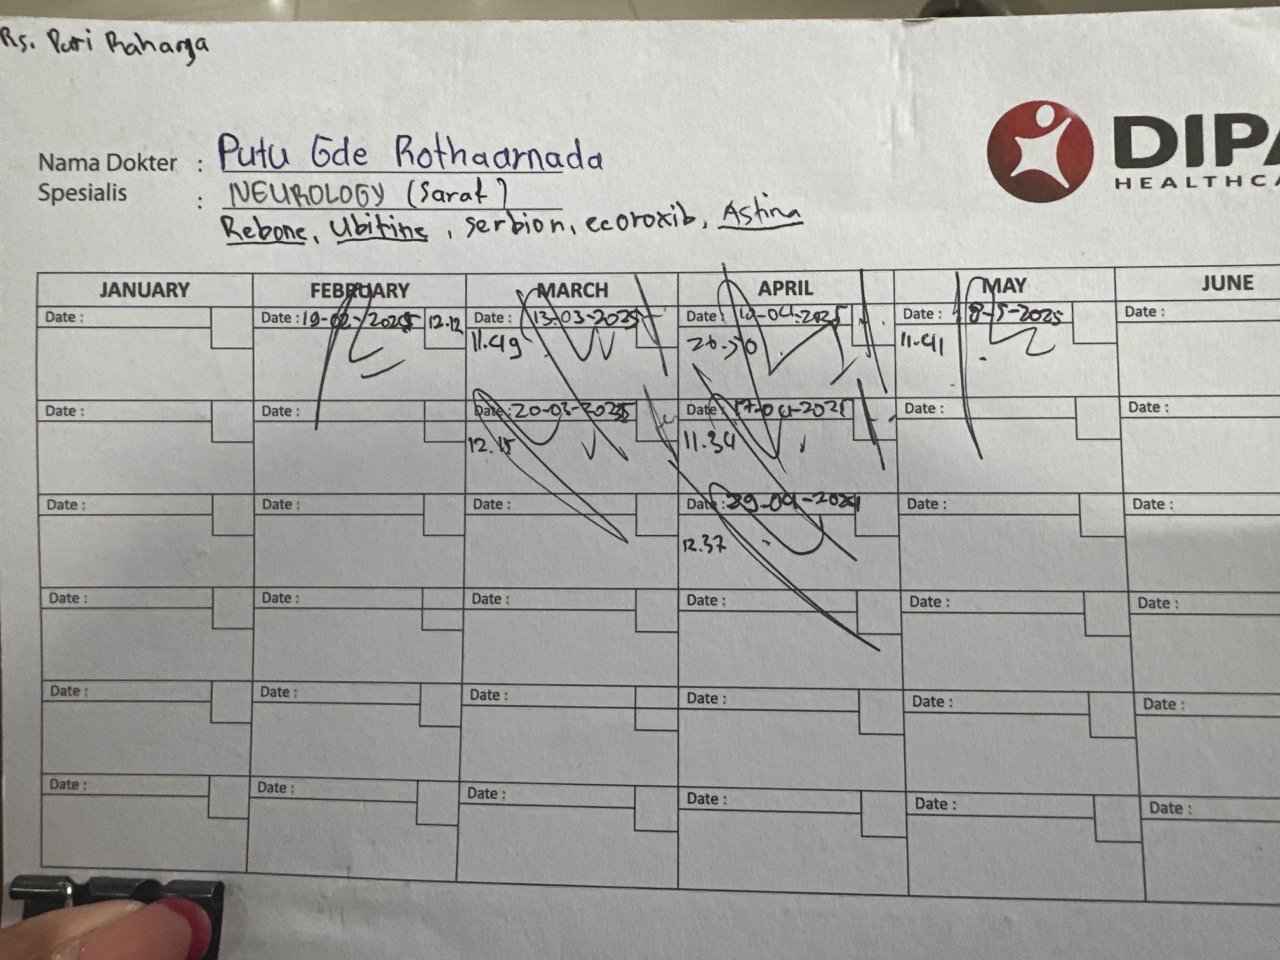 Rs. Puri Raharja
Nama Dokter : Putu Gde Rothaarnada
Spesialis : NEUROLOGY (Saraf)
Rebone, Ubitine, serbion, ecoroxib, Astina
DIPA
HEALTHCA
JANUARY FEBRUARY MARCH APRIL MAY JUNE
Date : Date : 19-02-2025 12.12 Date : 13-03-2025 Date : 10-04-2025 Date : 8-5-2025 Date :
11.49 20.50 11.41
Date : Date : Date : 20-03-2025 Date : 17-04-2025 Date : Date :
12.15 11.34
Date : Date : Date : Date : 29-04-2024 Date : Date :
12.37
Date : Date : Date : Date : Date : Date :
Date : Date : Date : Date : Date : Date :
Date : Date : Date : Date : Date : Date :